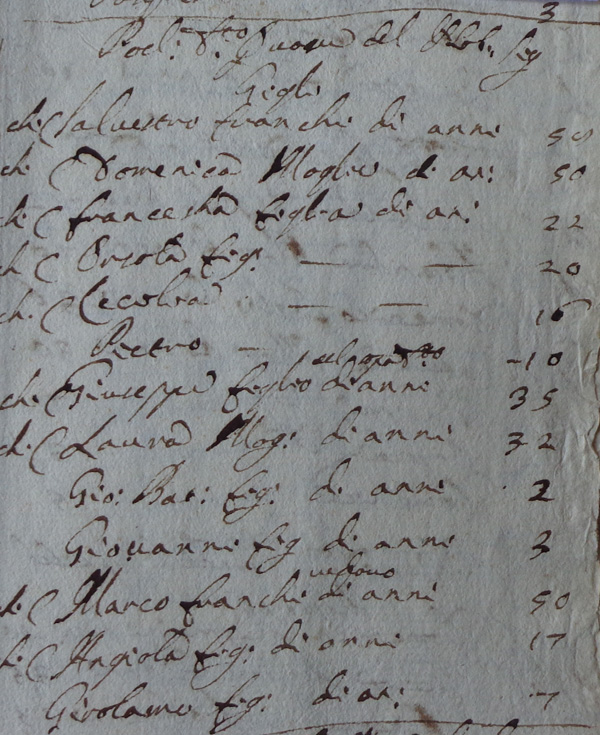 3
Pod: d:tto Cuore del Nob: Sig
Gigli
ch: ( Salvestro Franchi di anni 58
ch ( Domenica Moglie di an: 50
ch: ( Francescha figlia di an: 22
ch ( Orsola fig: — — 20
ch. ( Cecilia — — 16
Pietro — 10
ch: ( Giuseppe figlio di anni 35
ch: ( Laura Mog: di anni 32
Gio: Bat: fig: di anni 2
Giovanni fig di anni 3
vedovo
ch: ( Marco Franchi di anni 50
ch: ( Angiola fig: di anni 17
Girolamo fig: di an: 7